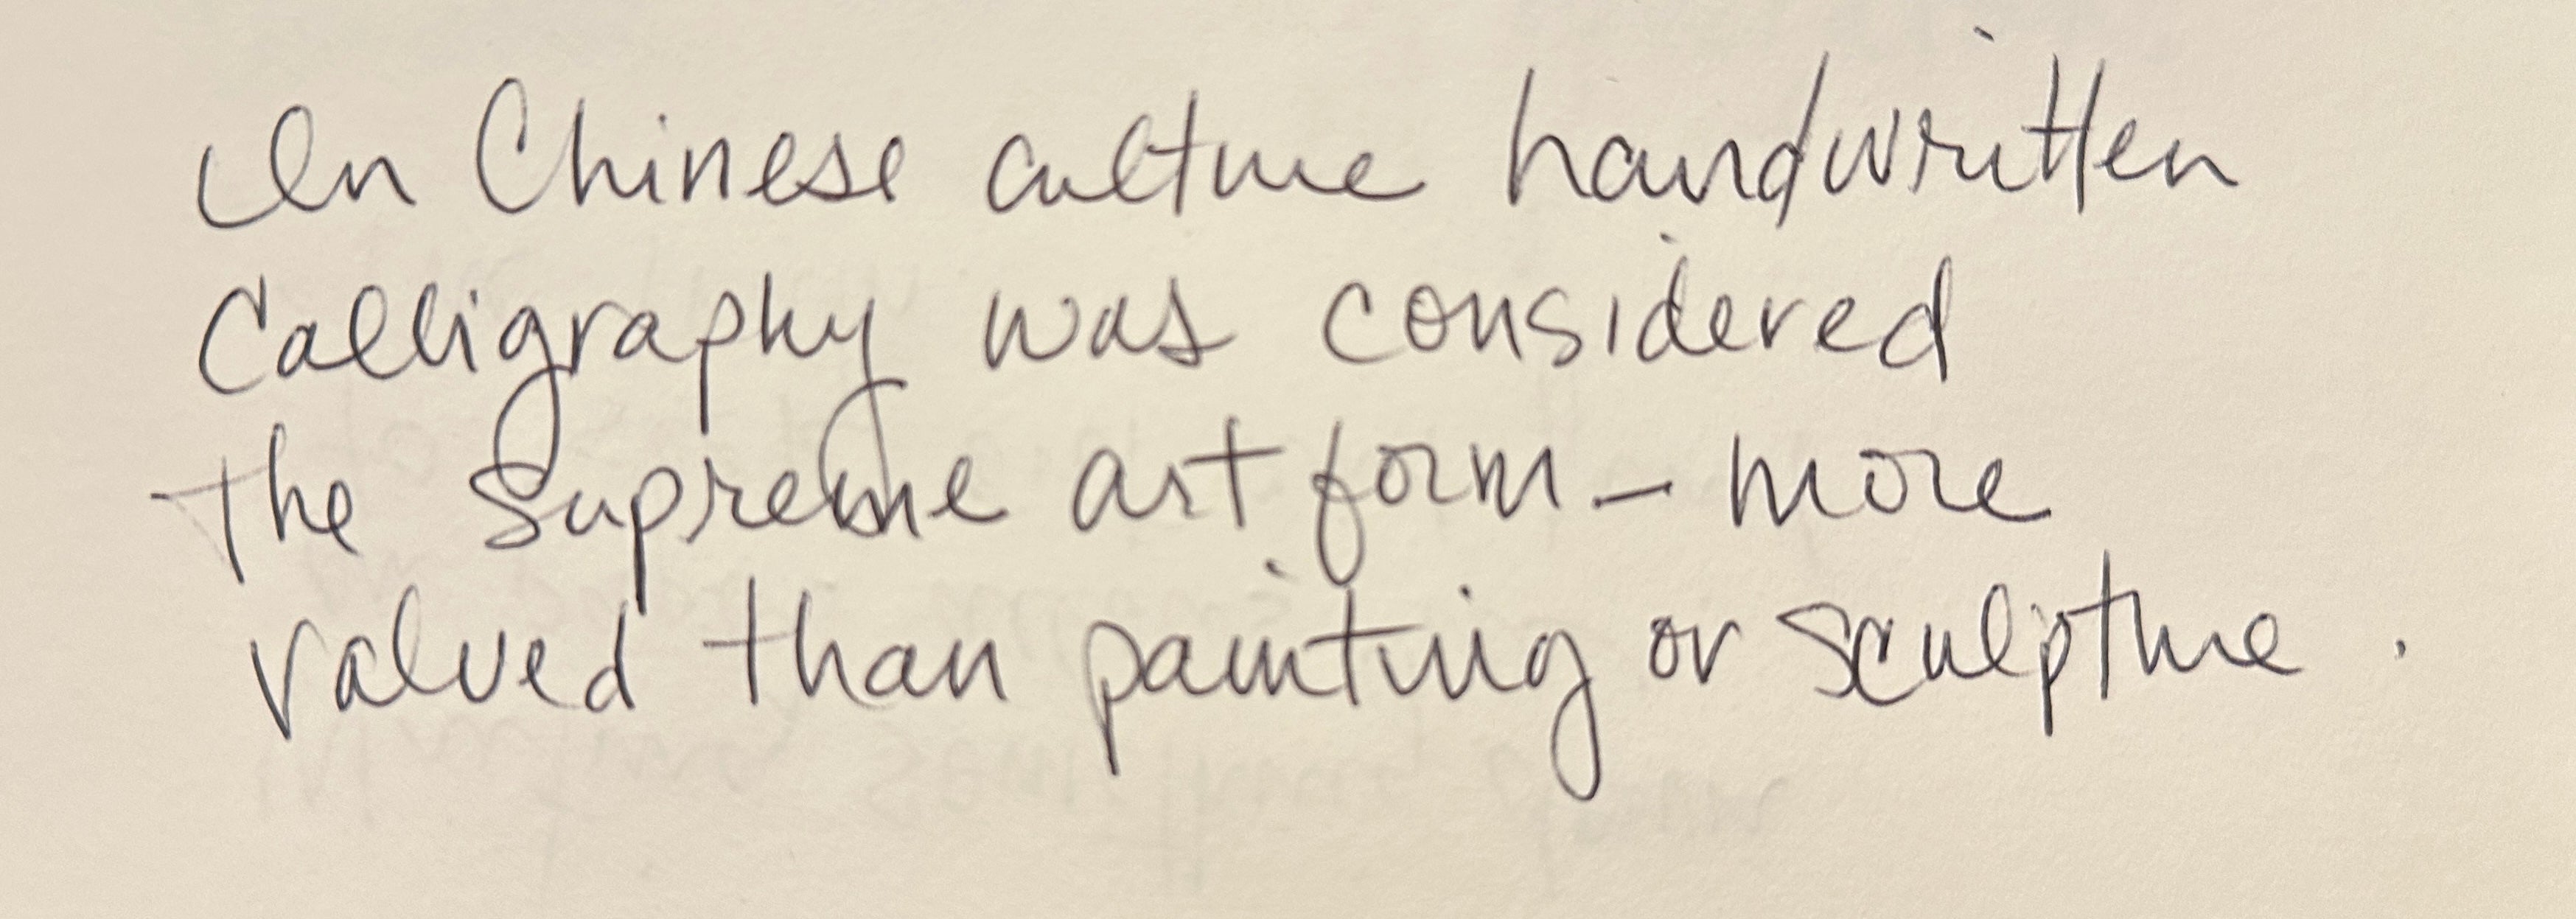 In Chinese culture handwritten
Calligraphy was considered
the Supreme art form – more
valued than painting or sculpture.